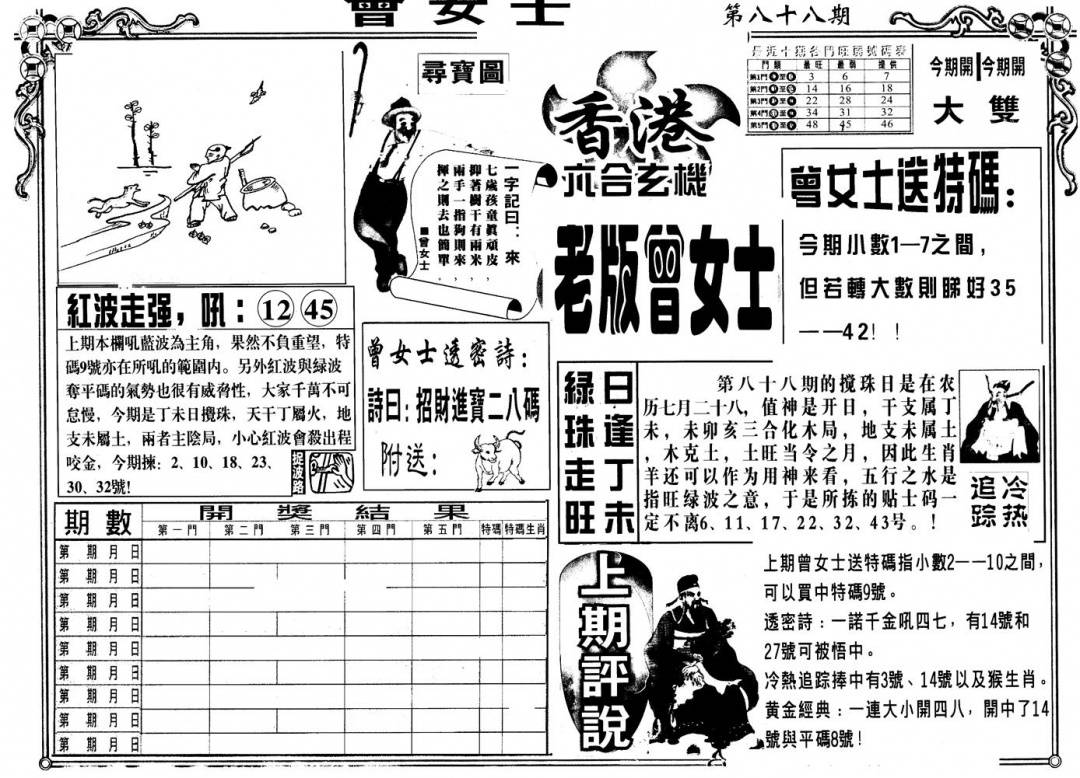 曾女士
第八十八期
尋寶圖
一字記曰：來
七歲孩童真頑皮，
抑著樹干有兩米，
兩手一指狗則來，
揮之則去也簡單。
■曾女士
香港
六合玄機
老版曾女士
最近十獵名門旺弱號碼表
門類 最旺 最弱 提供
第1門 至 3 6 7
第2門 至 14 16 18
第3門 至 22 28 24
第4門 至 34 31 32
第5門 至 48 45 46
今期開 今期開
大 雙
曾女士送特碼：
今期小數1—7之間，
但若轉大數則睇好35
——42！！
紅波走强，吼：12 45
上期本欄吼藍波為主角，果然不負重望，特
碼9號亦在所吼的範圍内。另外紅波與緑波
奪平碼的氣勢也很有威脅性，大家千萬不可
怠慢，今期是丁未日攪珠，天干丁屬火，地
支未屬土，兩者主陰局，小心紅波會殺出程
咬金，今期揀：2、10、18、23、
30、32號!
捉波路
曾女士透密詩：
詩曰：招財進寶二八碼
附送：
日逢丁未
綠珠走旺
第八十八期的搅珠日是在农
历七月二十八，值神是开日，干支属丁
未，未卯亥三合化木局，地支未属土
，木克土，土旺当令之月，因此生肖
羊还可以作为用神来看，五行之水是
指旺绿波之意，于是所拣的贴士码一
定不离6、11、17、22、32、43号。！
冷热
追踪
期數 開獎結果
第一門 第二門 第三門 第四門 第五門 特碼 特碼生肖
第 期 月 日
第 期 月 日
第 期 月 日
第 期 月 日
第 期 月 日
第 期 月 日
第 期 月 日
第 期 月 日
第 期 月 日
上期評說
上期曾女士送特碼指小數2——10之間，
可以買中特碼9號。
透密詩：一諾千金吼四七，有14號和
27號可被悟中。
冷熱追踪捧中有3號、14號以及猴生肖。
黄金經典：一連大小開四八，開中了14
號與平碼8號！